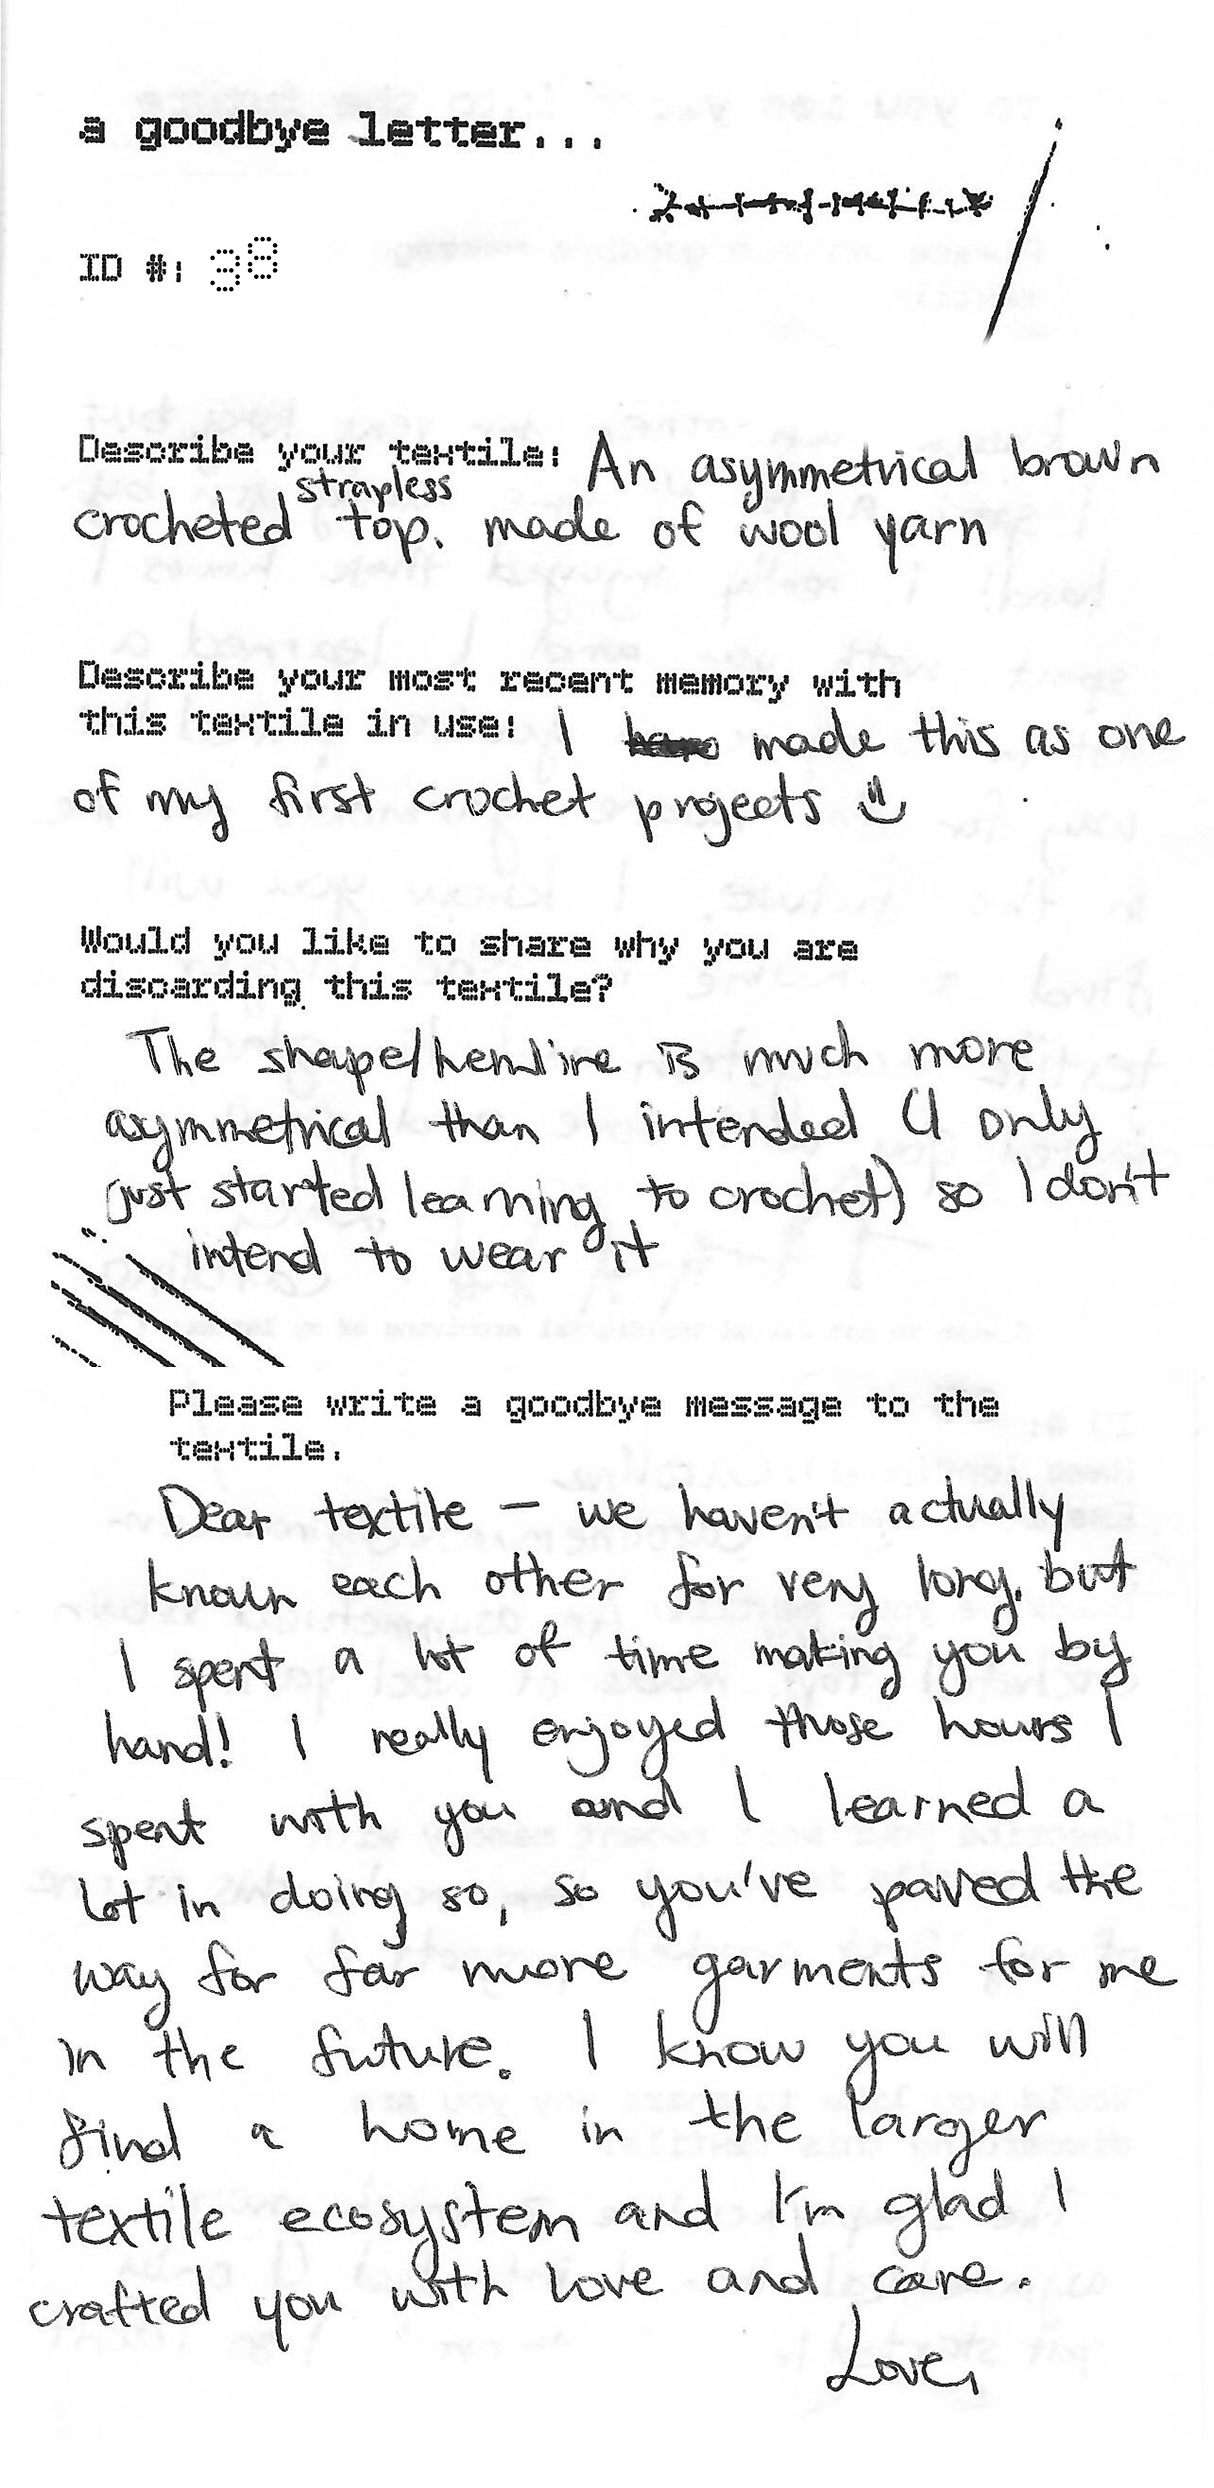 a goodbye letter...
ID #: 38
Describe your textile: An asymmetrical brown
strapless
crocheted top. made of wool yarn
Describe your most recent memory with
this textile in use: I made this as one
of my first crochet projects
Would you like to share why you are
discarding this textile?
The shape/hemline is much more
asymmetrical than I intended (I only
just started learning to crochet) so I don't
intend to wear it
Please write a goodbye message to the
textile.
Dear textile — we haven't actually
known each other for very long, but
I spent a lot of time making you by
hand! I really enjoyed those hours I
spent with you and I learned a
lot in doing so, so you've paved the
way for far more garments for me
in the future. I know you will
find a home in the larger
textile ecosystem and I'm glad I
crafted you with love and care.
Love,